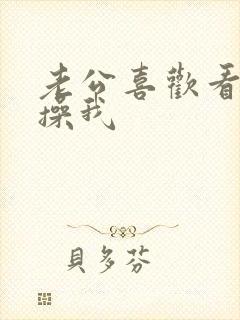 老公喜歡看
操我
貝多芬